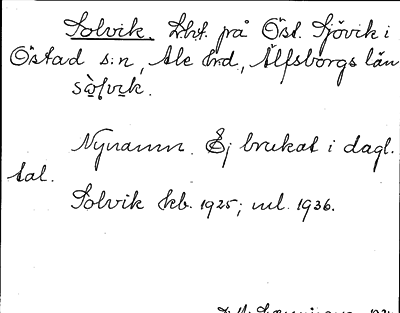 Solvik. Lht. på Öst. Sjövik i
Östad s:n, Ale hrd, Älfsborgs län
sòlvik.
Nynamn. Ej brukat i dagl.
tal.
Solvik kb. 1925; ml. 1936.